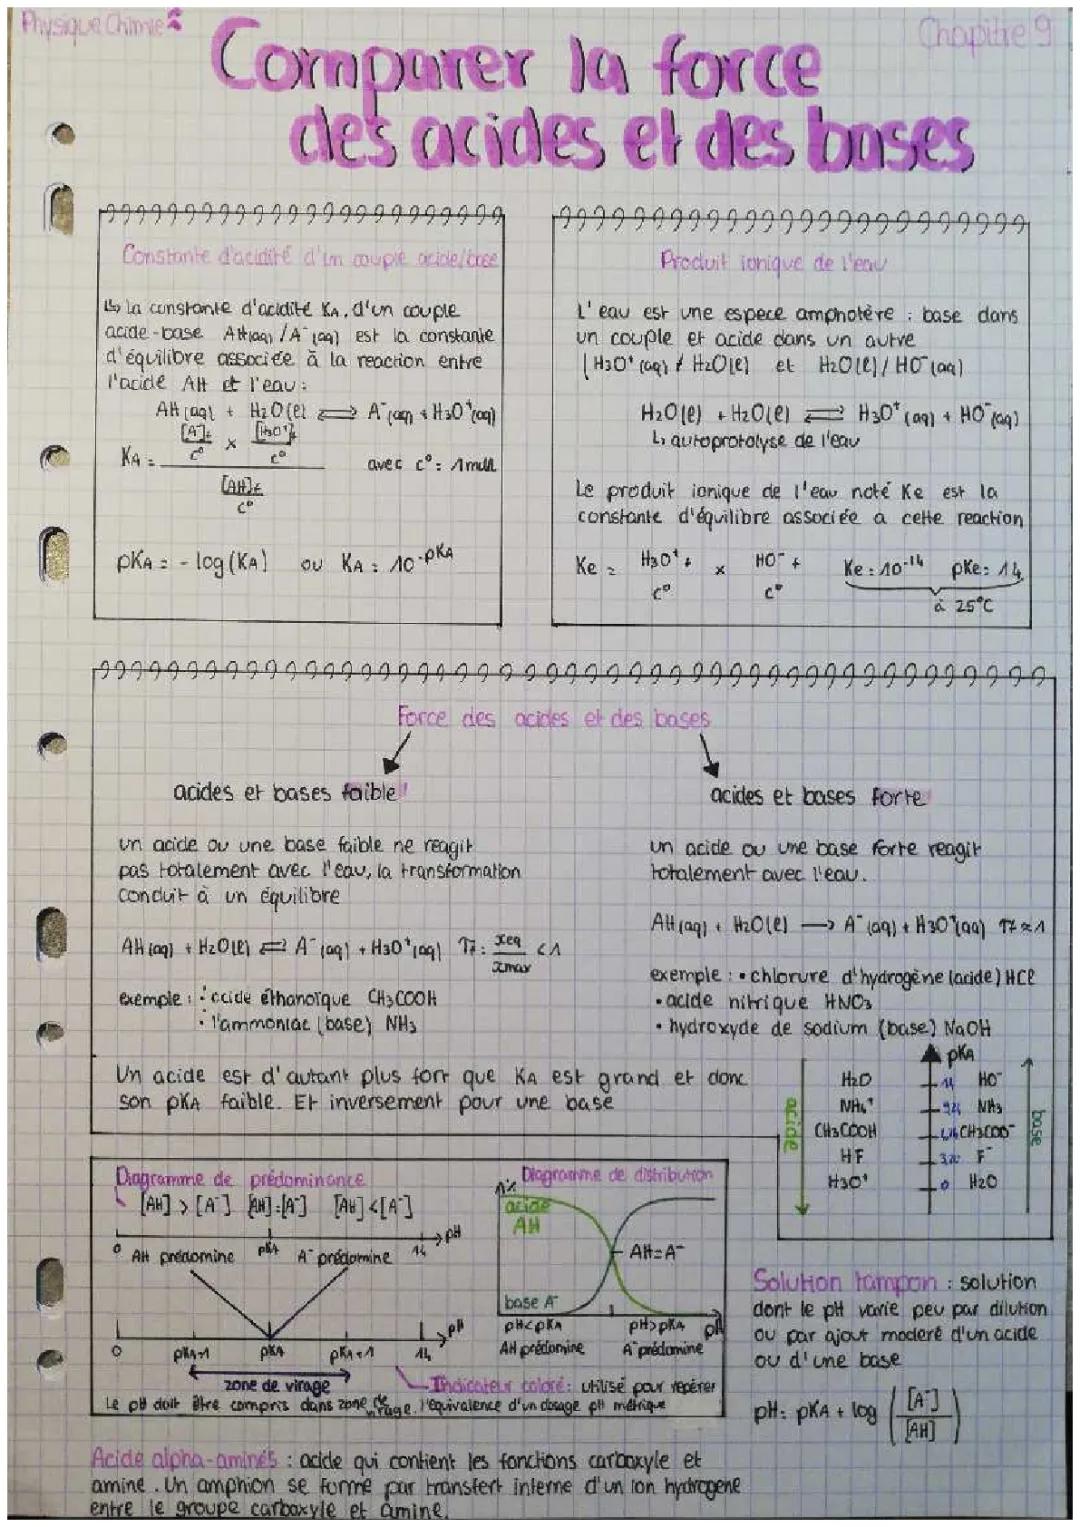 Physique Chimie
Chapitre 9
Comparer la force
des acides et des bases
Constante d'acidité d'un couple acide/base
↳ La constante d'acidité KA, d'un couple
acide-base AH(aq) /A⁻(aq) est la constante
d'équilibre associée à la reaction entre
l'acide AH et l'eau :
AH(aq) + H2O(l) ⇌ A⁻(aq) + H3O⁺(aq)
KA = ([A⁻]f/c° × [H3O⁺]f/c°) / ([AH]f/c°)
avec c° = 1mol/l
pKA = - log(KA) ou KA = 10^-pKA
Produit ionique de l'eau
L'eau est une espece amphotère : base dans
un couple et acide dans un autre
(H3O⁺(aq) / H2O(l) et H2O(l)/HO⁻(aq)
H2O(l) + H2O(l) ⇌ H3O⁺(aq) + HO⁻(aq)
↳ autoprotolyse de l'eau
Le produit ionique de l'eau noté Ke est la
constante d'équilibre associée a cette reaction
Ke = H3O⁺f/c° × HO⁻f/c° Ke = 10^-14 pKe = 14
à 25°C
Force des acides et des bases
acides et bases faible
un acide ou une base faible ne reagit
pas totalement avec l'eau, la transformation
conduit à un équilibre
AH(aq) + H2O(l) ⇌ A⁻(aq) + H3O⁺(aq) τ = xeq/xmax < 1
exemple : • acide éthanoïque CH3COOH
• l'ammoniac (base) NH3
acides et bases forte
un acide ou une base forte reagit
totalement avec l'eau.
AH(aq) + H2O(l) → A⁻(aq) + H3O⁺(aq) τ ≈ 1
exemple : • chlorure d'hydrogène (acide) HCl
• acide nitrique HNO3
• hydroxyde de sodium (base) NaOH
Un acide est d'autant plus fort que KA est grand et donc
son pKA faible. Et inversement pour une base
pKA
H2O 14 HO⁻
NH4⁺ NH3
CH3COOH CH3COO⁻
HF 3,20 F⁻
H3O⁺ 0 H2O
acide
base
Diagramme de prédominance
[AH] > [A⁻] [AH] = [A⁻] [AH] < [A⁻]
0 pKA 14 pH
AH prédomine A⁻ prédomine
0 pKA-1 pKA pKA+1 14 pH
zone de virage
Le pH doit être compris dans zone de virage
Indicateur coloré : utilisé pour repérer
l'équivalence d'un dosage pH métrique
Diagramme de distribution
%
acide
AH
AH=A⁻
base A⁻
pH<pKA pH>pKA pH
AH prédomine A⁻ prédomine
Solution tampon : solution
dont le pH varie peu par dilution
ou par ajout moderé d'un acide
ou d'une base
pH = pKA + log ([A⁻]/[AH])
Acide alpha-aminés : acide qui contient les fonctions carboxyle et
amine. Un amphion se forme par transfert interne d'un ion hydrogene
entre le groupe carboxyle et amine.